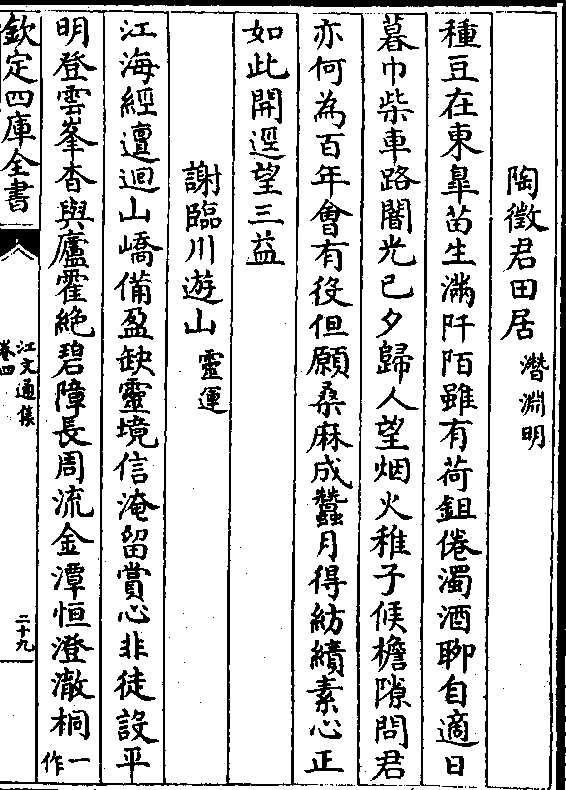 陶徵君田居潛淵明
種豆在東臯苗生滿阡陌雖有荷鉏倦濁酒聊自適日
暮巾柴車路闇光已夕歸人望烟火稚子候檐隙問君
亦何為百年會有役但願桑麻成蠶月得紡績素心正
如此開逕望三益
謝臨川遊山靈運
江海經邅迴山嶠備盈缺靈境信淹留賞心非徒設平
明登雲峯杳與廬霍絶碧障長周流金潭恒澄澈桐一作
欽定四庫全書
江文通集
卷四
二十九